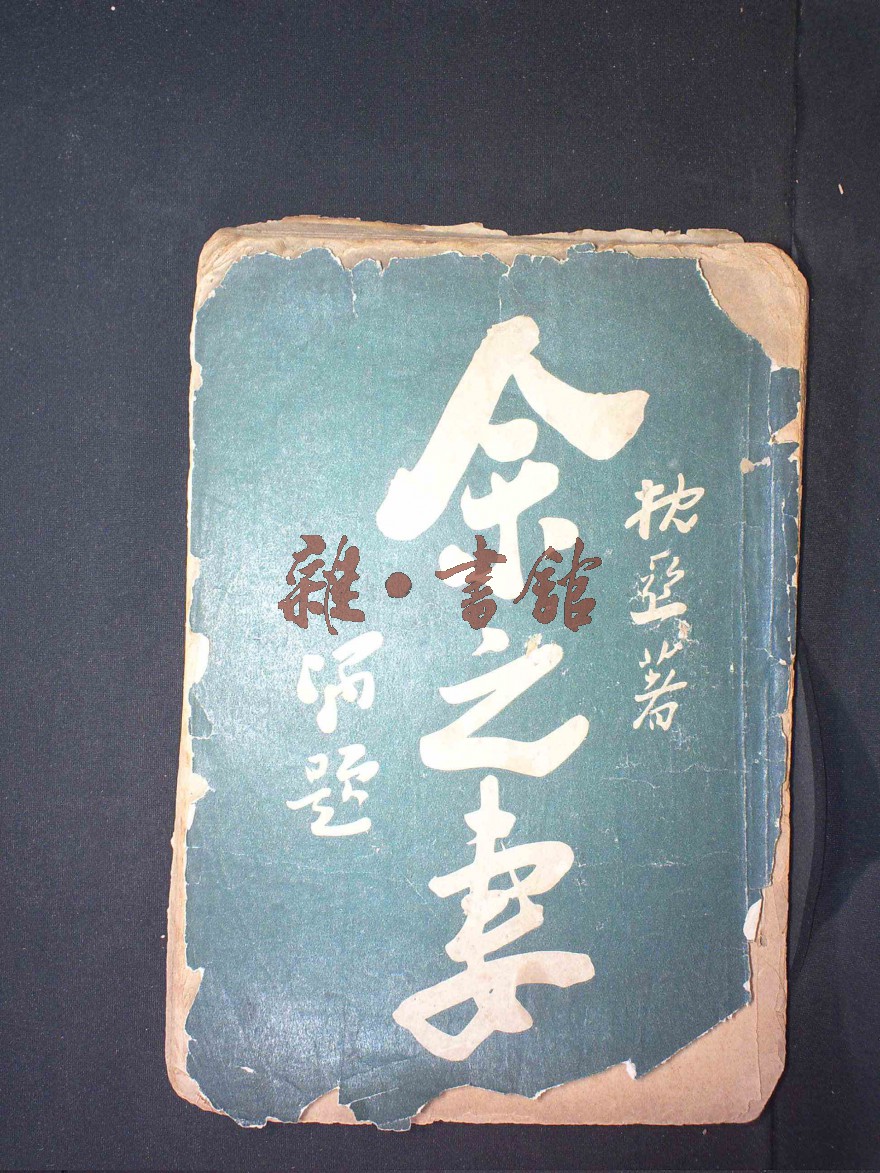 枕亞著
余之妻
題
雜·書館